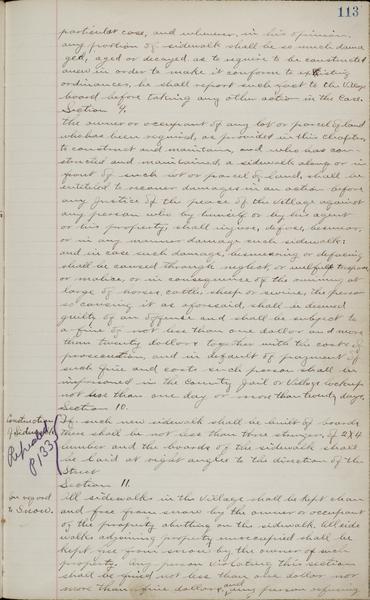 113
particular case, and whenever, in his opinion
any portion of sidewalk shall be so much dama
ged, aged or decayed as to require to be constructed
anew in order to make it conform to existing
ordinances, he shall report such fact to the Village
board before taking any other action in the case.
Section 9.
The owner or occupant of any lot or parcel of land
who has been required, as provided in this chapter,
to construct and maintain, and who has con-
structed and maintained, a sidewalk along or in
front of such lot or parcel of land, shall be
entitled to recover damages in an action before
any Justice of the peace of the Village against
any person who by himself or by his agent
or his property, shall injure, deface, besmear,
or in any manner damage such sidewalk:
and in case such damage, besmearing or defacing
shall be caused through neglect, or willful trespass
or malice, or in consequence of the running at
large of horses, cattle, sheep or swine, the person
so causing it as aforesaid, shall be deemed
guilty of an offense and shall be subject to
a fine of not less than one dollar and more
than twenty dollars together with the costs of
prosecution, and in default of payment of
such fine and costs such person shall be
imprisoned in the County Jail or Village lockup
not less than one day or more than twenty days.
Section 10.
Construction
of Sidewalk
Repealed
P 135
If such new sidewalk shall be built of boards
there shall be not less than three stringers of 2x4
lumber and the boards of the sidewalk shall
be laid at right angles to the direction of the
Street
Section 11.
in regard
to Snow.
All sidewalks in the Village shall be kept clean
and free from snow by the owner or occupant
of the property abutting on the sidewalk. All side
walks adjoining property unoccupied shall be
kept free from snow by the owner of such
property. Any person violating this section
shall be fined not less than one dollar nor
more than five dollars, and any person refusing